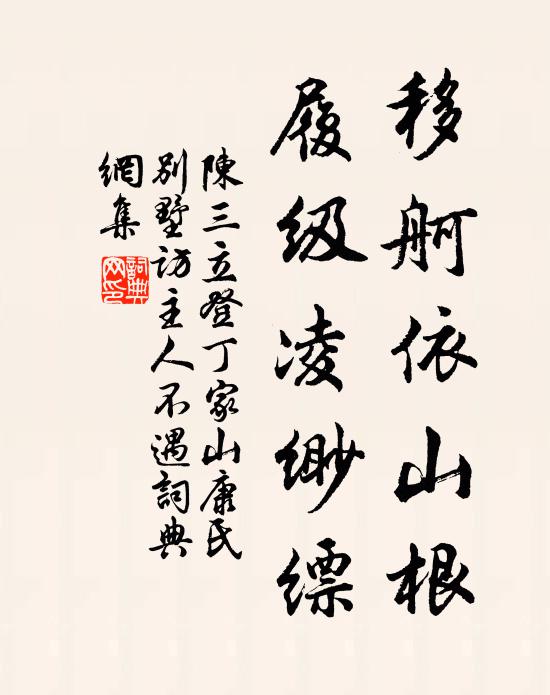 移舸依山根
履级凌缈缥
陳三立登丁家山康氏
別墅访主人不遇詞典
網集
詞典
网印